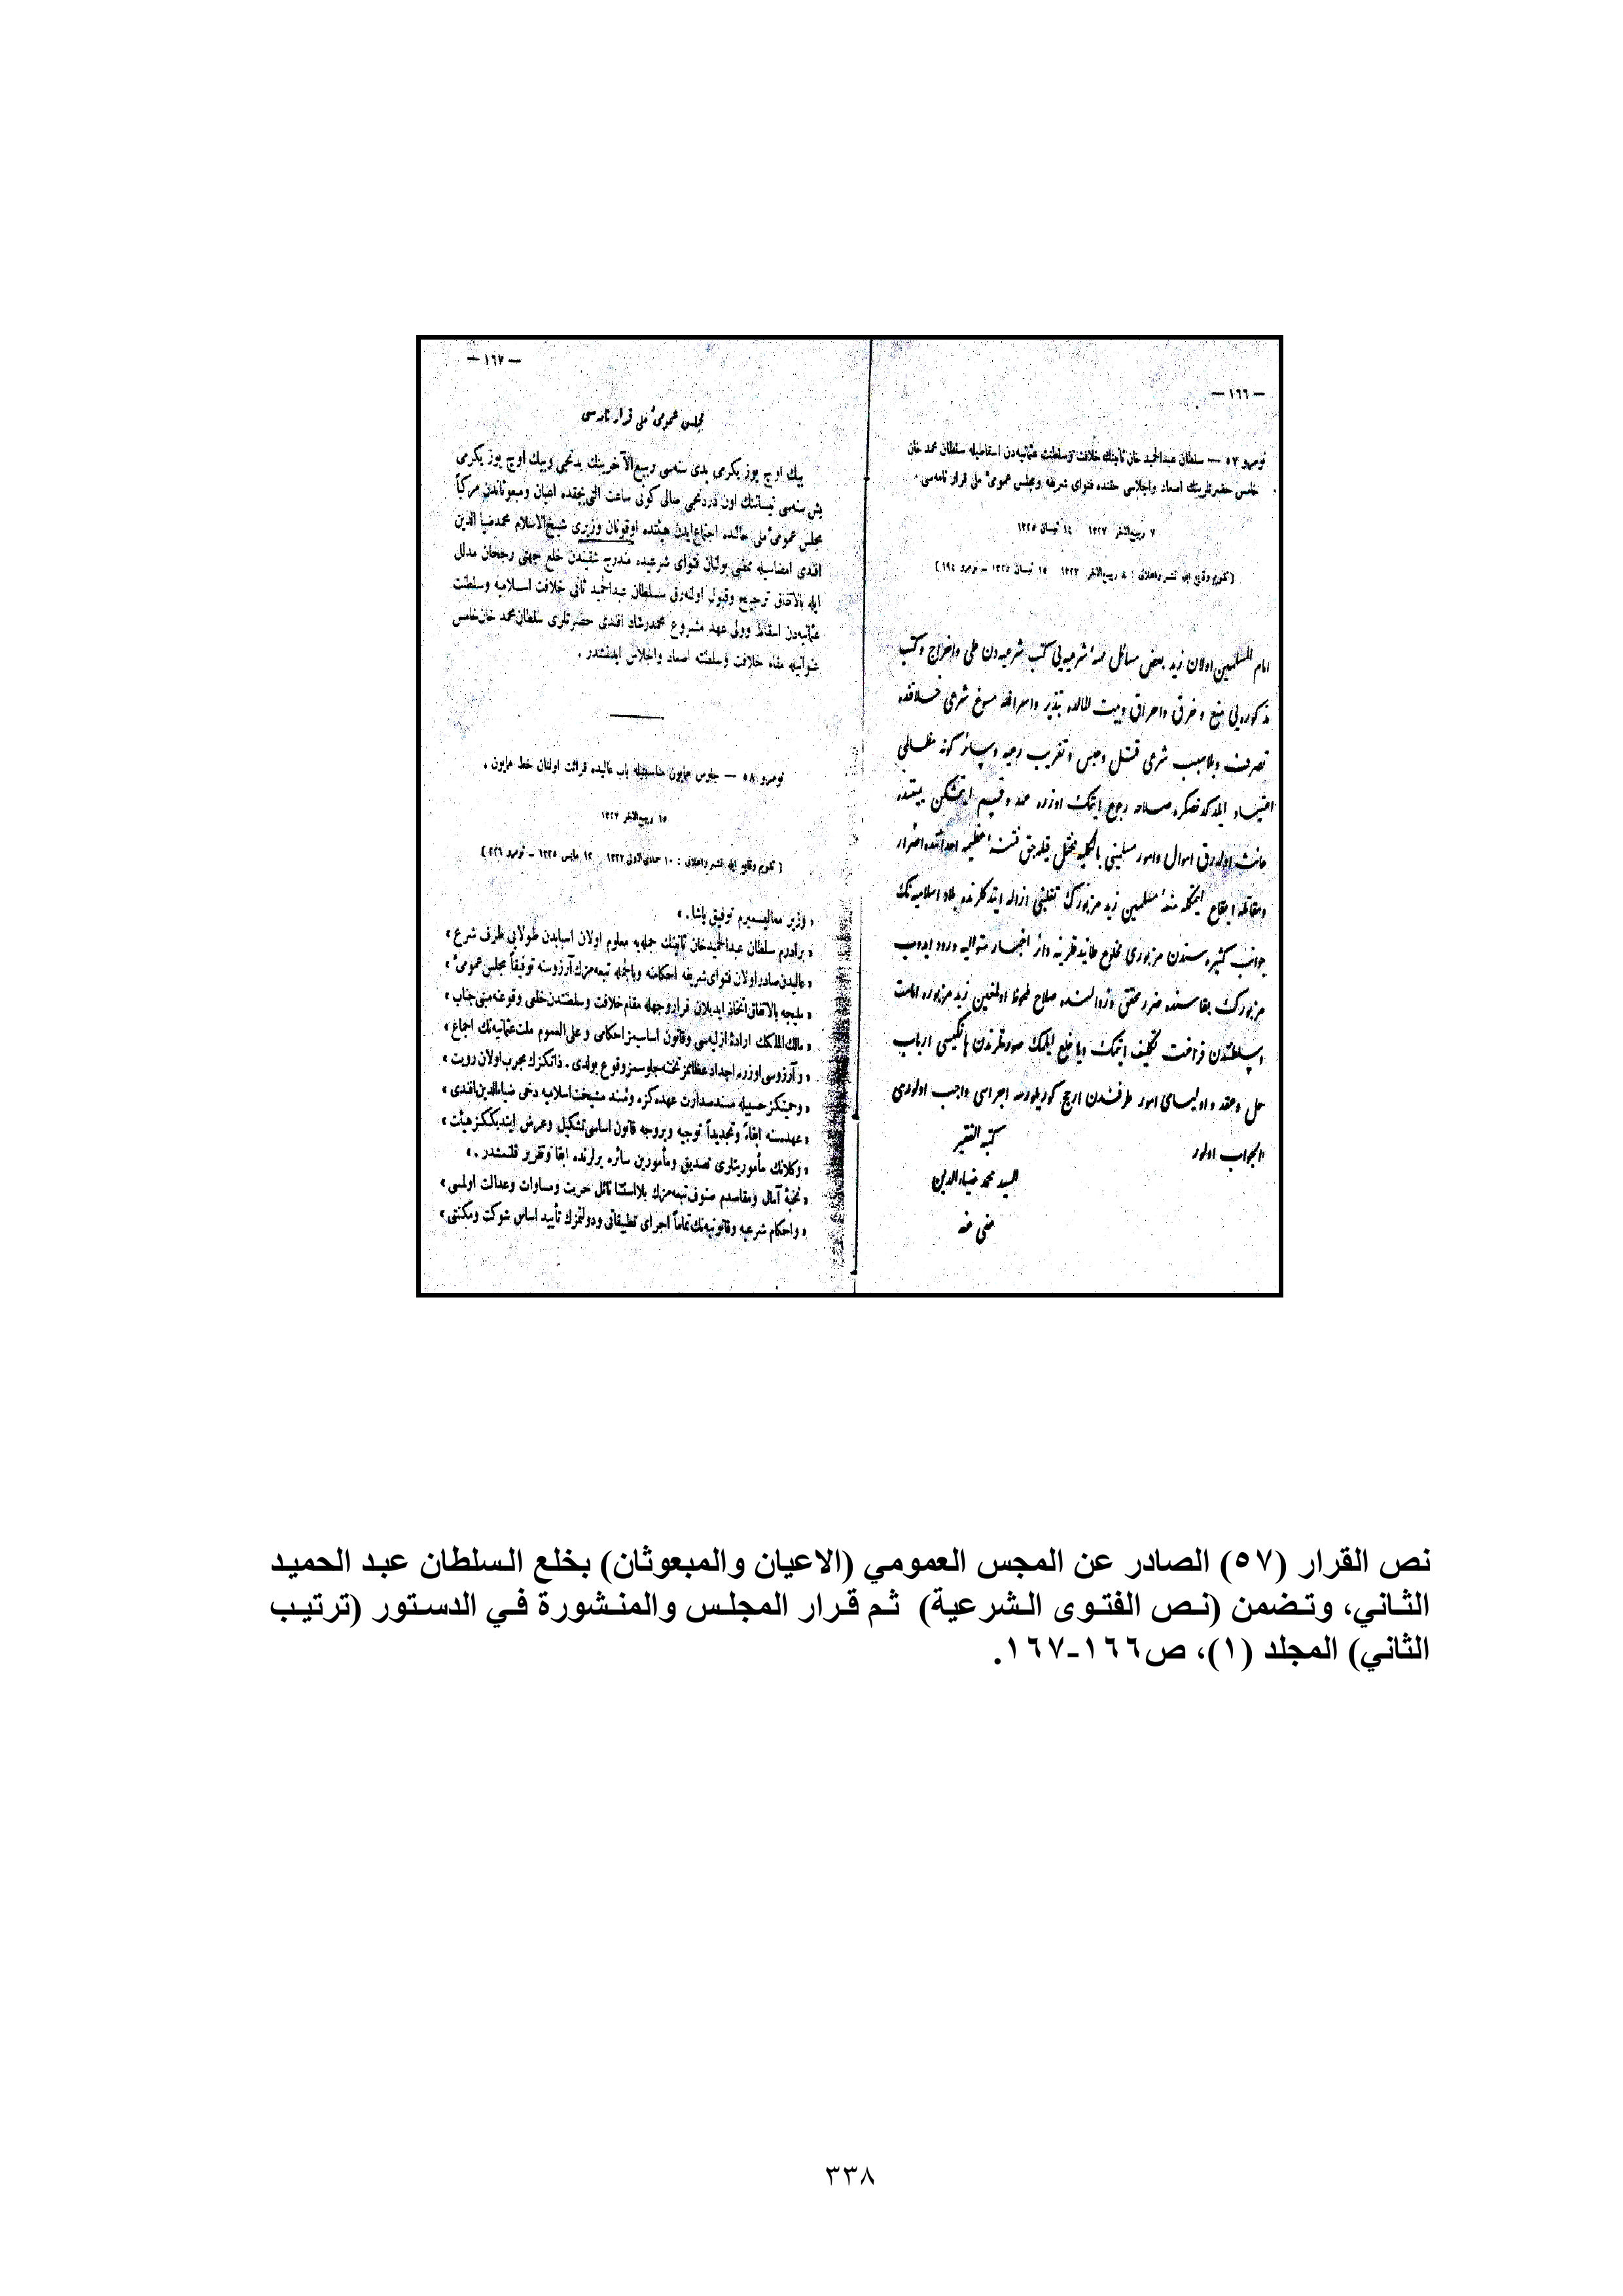 — ١٦٦ —
نومرو ٥٧ — سلطان عبدالحميد خان ثانينك خلافت وسلطنت عثمانيه‌دن اسقاطيله سلطان محمد خان
خامس حضرتلرينك اصعاد واجلاسى حقنده فتواى شريفه ومجلس عمومئ ملى قرارنامه‌سى .
٧ ربيع‌الاخر ١٣٢٧ ١٤ نيسان ١٣٢٥
( تقويم وقايع ايله نشر واعلانى : ٨ ربيع‌الاخر ١٣٢٧ ١٥ نيسان ١٣٢٥ — نومرو ١٩٤ )
امام المسلمين اولان زيد بعض مسائل مهمهٔ شرعيه‌يى كتب شرعيه‌دن طى واخراج وكتب
مذكوره‌يى منع و خرق واحراق وبيت المالده تبذير واسرافله مسوغ شرعى خلافنده
تصرف وبلاسبب شرعى قتل وحبس وتغريب رعيه وسائر كونه مظالمى
اعتياد ايلدكدنصكره صلاحه رجوع ايتمك اوزره عهد و قسم ايتمشكن يمينده
حانث اوله‌رق احوال وامور مسلمينى بالكليه مختل قيله‌جق فتنهٔ عظيمه احداثنده اصرار
ومقاتله ايقاع ايتمكله منعهٔ مسلمين زيد مزبورك تغلبنى ازاله ايتدكلرنده بلاد اسلاميه‌نك
جوانب كثيره‌سندن مزبورى مخلوع طانيدقلرينه دائر اخبار متواليه ورود ايدوب
مزبورك بقاسنده ضرر محقق وزوالنده صلاح ملحوظ اولمغين زيد مزبوره امامت
وسلطنتدن فراغت تكليف ايتمك وياخلع ايلمك صورتلرندن هانكيسى ارباب
حل وعقد و اولياى امور طرفندن ارجح كوريلورسه اجراسى واجب اولورمى
الجواب اولور
كتبه الفقير
السيد محمد ضياءالدين
عفى عنه
— ١٦٧ —
مجلس عمومئ ملى قرارنامه‌سى
بيك اوچ يوز يكرمى يدى سنه‌سى ربيع‌الآخرينك يدنجى وبيك اوچ يوز يكرمى
بش سنه‌سى نيساننك اون دردنجى صالى كونى ساعت آلتى بچقده اعيان ومبعوثاندن مركباً
مجلس عمومئ ملى حالنده اجتماع ايدن هيئتده اوقونان وزيرى شيخ‌الاسلام محمدضيا الدين
افندى امضاسيله ممضى بولنان فتواى شرعيده مندرج شقيندن خلع جهتى رجحان مدلل
ايله بالاتفاق ترجيح وقبول اولنه‌رق سلطان عبدالحميد ثانى خلافت اسلاميه وسلطنت
عثمانيه‌دن اسقاط وولى عهد مشروع محمدرشاد افندى حضرتلرى سلطان محمد خان خامس
عنوانيله مقام خلافت وسلطنته اصعاد واجلاس ايدلمشدر .
نومرو ٥٨ — جلوس همايون مناسبتيله باب عاليده قرائت اولنان خط همايون .
١٥ ربيع‌الاخر ١٣٢٧
( تقويم وقايع ايله نشر واعلانى : ١٠ جمادى‌الاولى ١٣٢٧ ١٣ مايس ١٣٢٥ — نومرو ٢٢٦ )
« وزير معاليسميرم توفيق پاشا . »
« برادرم سلطان عبدالحميدخان ثانينك جمله‌يه معلوم اولان اسبابدن طولايى طرف شرع »
« عاليدن صادر اولان فتواى شريفه احكامنه وبالجمله تبعه‌مزك آرزوسنه توفيقاً مجلس عمومئ »
« مليجه بالاتفاق اتخاذ ايديلان قرار وجهله مقام خلافت وسلطنتدن خلعى وقوعنه مبنى جناب »
« مالك‌الملكك ارادهٔ ازليه‌سى وقانون اساسيمز احكامى و على‌العموم ملت عثمانيه‌نك اجماع »
« و آرزوسى اوزره اجداد عظاممز تختنه جلوسمز وقوع بولدى . ذاتكزك مجرب اولان رويت »
« وحميتكز حسبيله مسند صدارت عهده‌كزه ومسند مشيخت اسلاميه دخى ضياءالدين افندى »
« عهدسنه ابقاءً وتجديداً توجيه وبروجه قانون اساسى تشكيل وعرض ايتديككز هيئت »
« وكلانك مأموريتلرى تصديق ومأمورين سائره يرلرنده ابقا وتقرير قلنمشدر . »
« نخبهٔ آمال ومقاصدم صنوف تبعه‌مزك بلااستثنا نائل حريت ومساوات وعدالت اولمسى »
« واحكام شرعيه وقانونيه‌نك تماماً اجراى تطبيقاتى ودولتمزك تأييد اساس شوكت ومكنتى »
نص القرار (٥٧) الصادر عن المجس العمومي (الاعيان والمبعوثان) بخلع السلطان عبد الحميد
الثاني، وتضمن (نص الفتوى الشرعية) ثم قرار المجلس والمنشورة في الدستور (ترتيب
الثاني) المجلد (١)، ص١٦٦-١٦٧.
٣٣٨